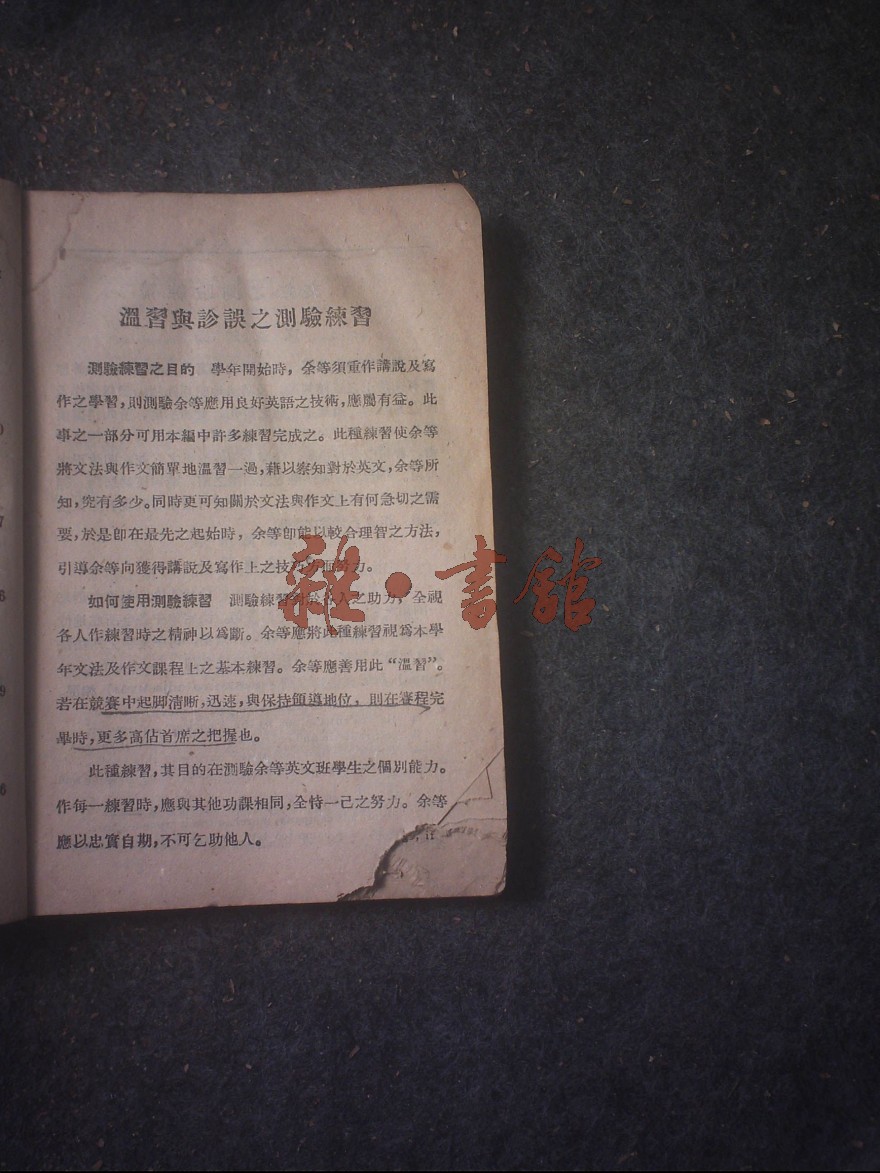 溫習與診誤之測驗練習
測驗練習之目的 學年開始時，余等須重作講說及寫
作之學習，則測驗余等應用良好英語之技術，應屬有益。此
事之一部分可用本編中許多練習完成之。此種練習使余等
將文法與作文簡單地溫習一過，藉以察知對於英文，余等所
知，究有多少。同時更可知關於文法與作文上有何急切之需
要，於是卽在最先之起始時，余等卽能以較合理智之方法，
引導余等向獲得講說及寫作上之技巧方面努力。
如何使用測驗練習 測驗練習對於各人之助力，全視
各人作練習時之精神以爲斷。余等應將此種練習視爲本學
年文法及作文課程上之基本練習。余等應善用此“溫習”。
若在競賽中起脚淸晰，迅速，與保持領導地位，則在賽程完
畢時，更多高佔首席之把握也。
此種練習，其目的在測驗余等英文班學生之個別能力。
作每一練習時，應與其他功課相同，全恃一己之努力。余等
應以忠實自期，不可乞助他人。
雜·書館